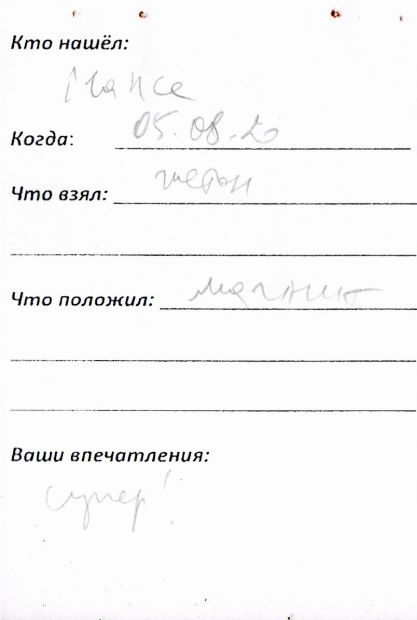 Кто нашёл:
Когда: 05.08.20
Что взял: жетон
Что положил: магнит
Ваши впечатления:
супер!